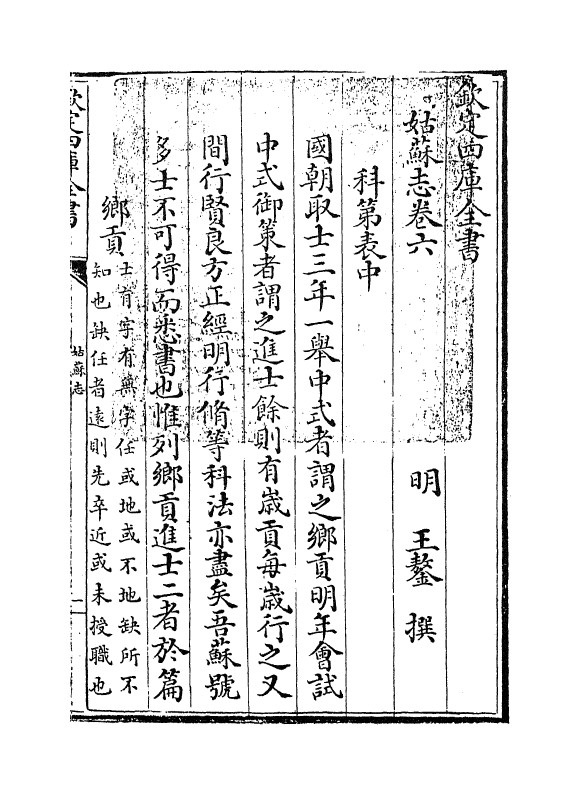 欽定四庫全書
姑蘇志卷六
明 王鏊 撰
科第表中
國朝取士三年一舉中式者謂之鄉貢明年會試
中式御策者謂之進士餘則有歲貢每歲行之又
間行賢良方正經明行脩等科法亦盡矣吾蘇號
多士不可得而悉書也惟列鄉貢進士二者於篇
鄉貢
士有字有無字任或地或不地缺所不
知也缺任者遠則先卒近或未授職也
欽定四庫全書
姑蘇志